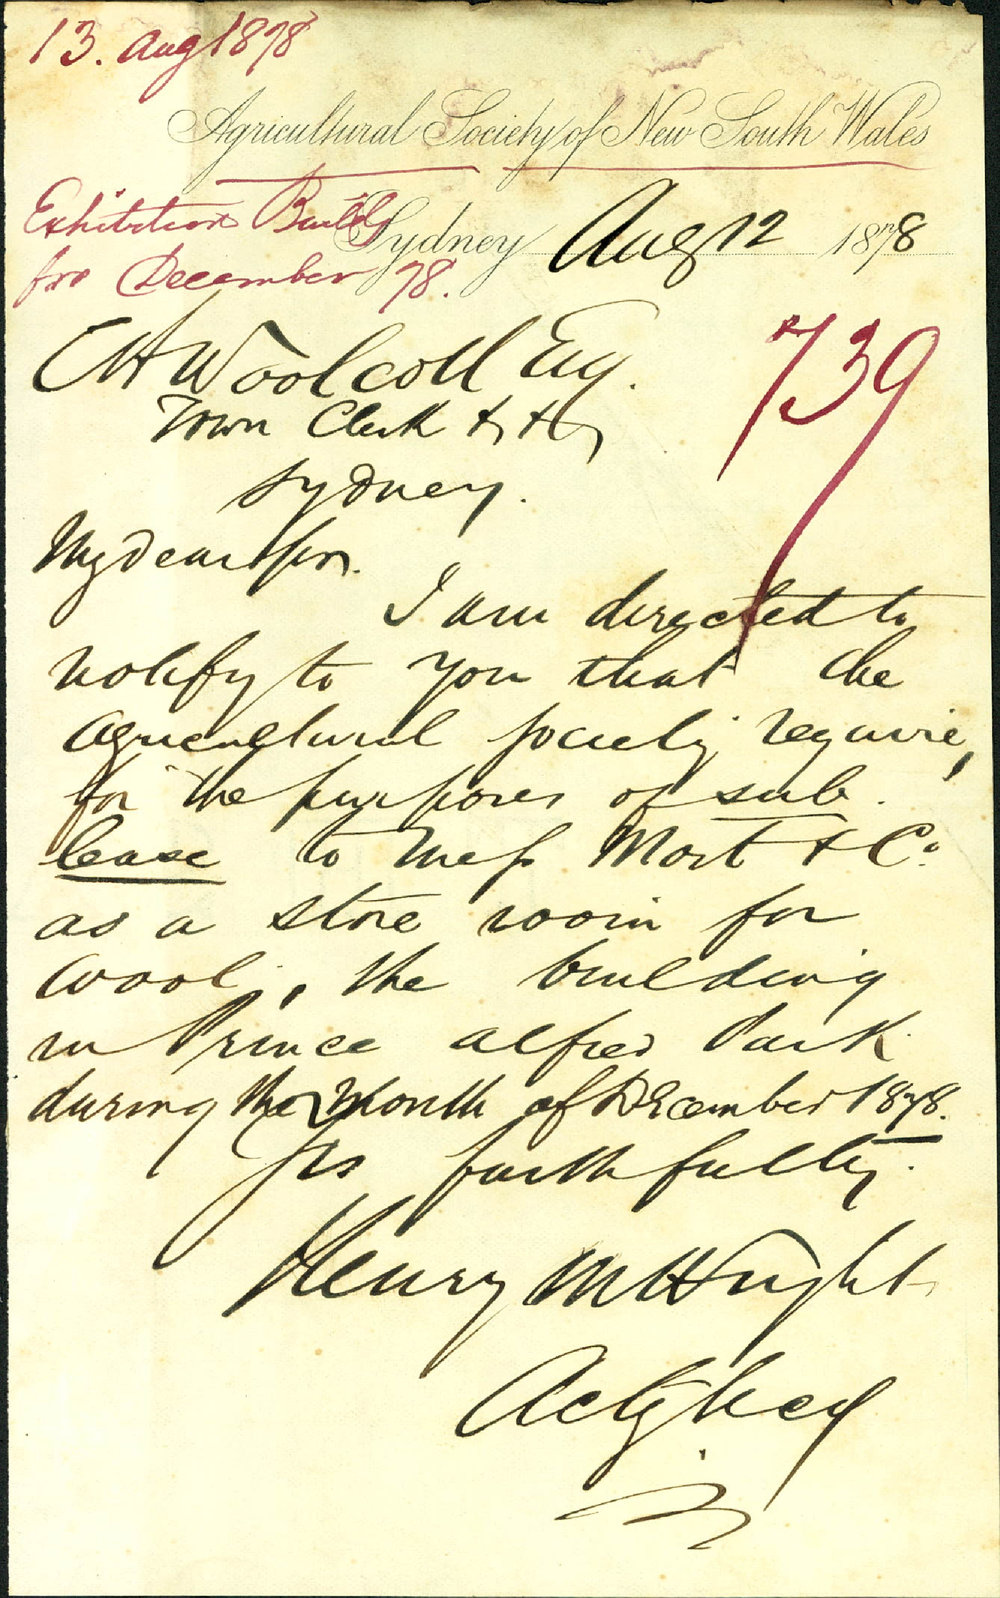 13. Aug 1878
Agricultural Society of New South Wales
Exhibition Buildg
for December 78.
Sydney Aug 12 1878
739
CH Woolcott Esq.
Town Clerk &c &c
Sydney.
My dear Sir.
I am directed to
notify to you that the
Agricultural Society require,
for the purposes of sub.
lease to Mess Mort & Co.
as a store room for
wool, the building
in Prince Alfred Park
during the Month of December 1878.
Yrs faithfully.
Henry
Actg Secy